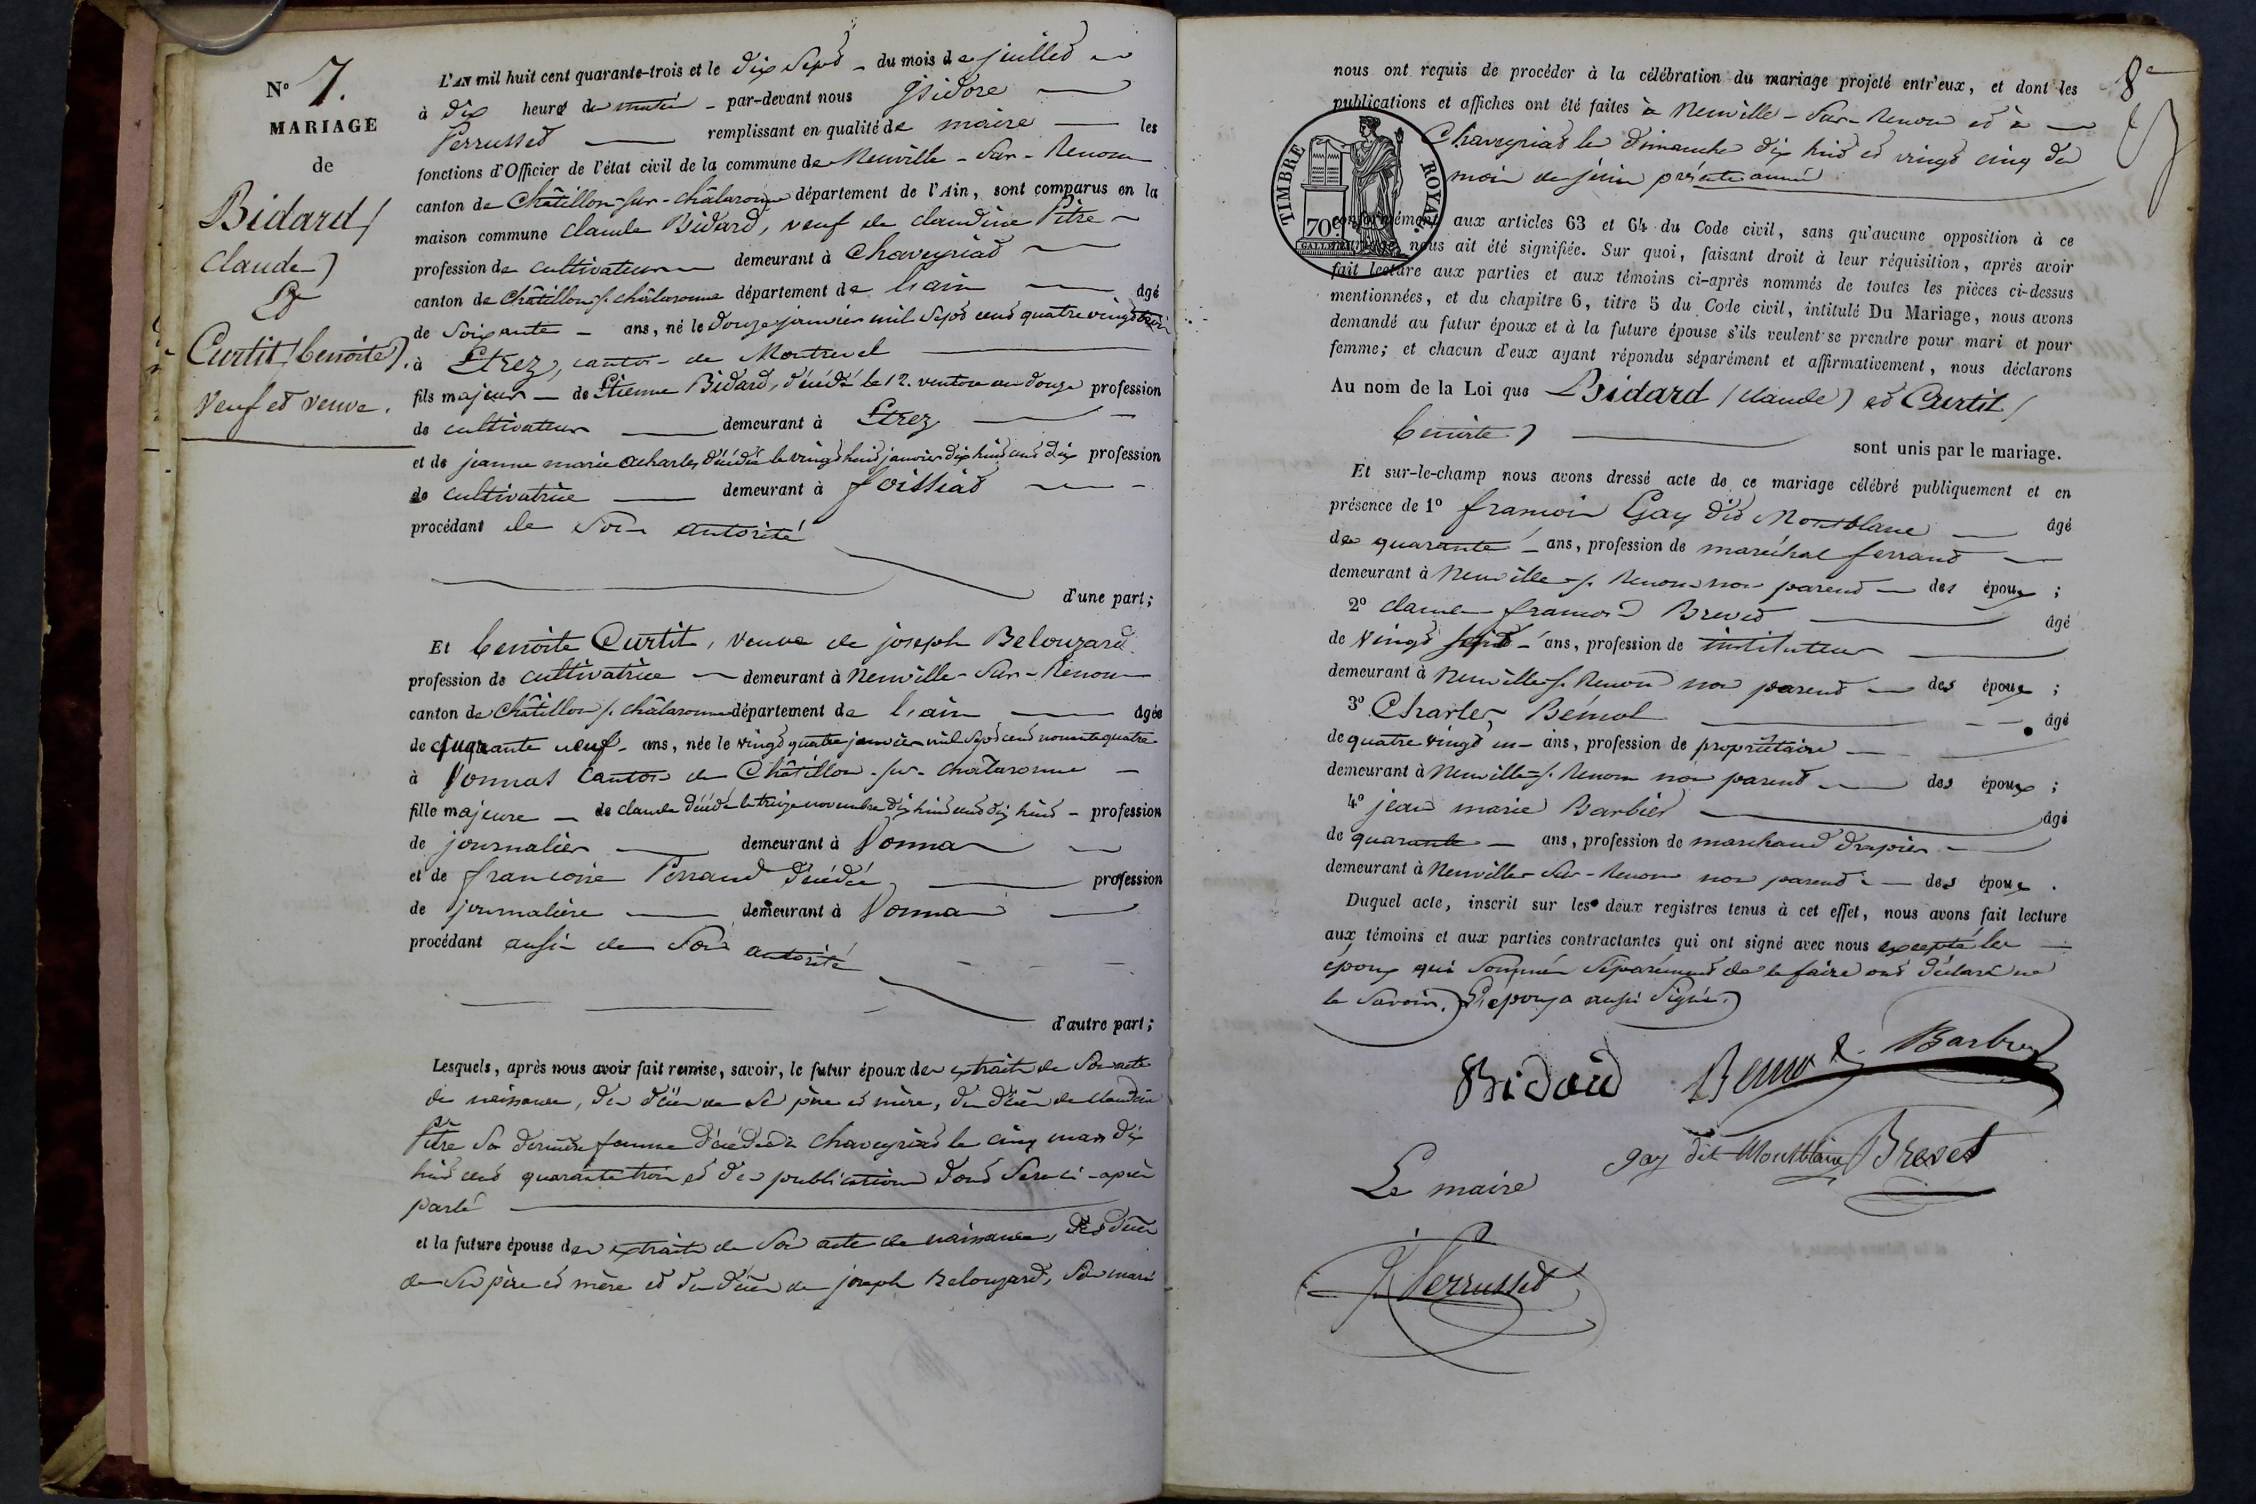 N° 7.
MARIAGE
de
Bidard (
Claude)
Et
Curtit (benoite).
Veuf et veuve.
L'AN mil huit cent quarante-trois et le dix sept - du mois de juillet
à dix heures du matin - par-devant nous Isidore
Perrusset remplissant en qualité de maire les
fonctions d'Officier de l'état civil de la commune de Neuville-Sur-Renom
canton de Châtillon-sur-châlaronne département de l'Ain, sont comparus en la
maison commune claude Bidard, veuf de claudine Pitre
profession de cultivateur demeurant à Chaveyriat
canton de Châtillon s/. châlaronne département de l'ain âgé
de soixante - ans, né le douze janvier mil sept cent quatre vingt trois
à Etrez, canton de Montrevel
fils majeur - de Etienne Bidard, décédé le 12. ventose an douze profession
de cultivateur demeurant à Etrez
et de jeanne marie décédée le vingt huit janvier dix huit cent dix profession
de cultivatrice demeurant à foissiat
procédant de son autorité
d'une part;
Et benoite Curtit, veuve de joseph Belouzard
profession de cultivatrice demeurant à Neuville-Sur-Renom
canton de Châtillon s/. châlaronne département de l'ain âgée
de cinquante neuf - ans, née le vingt quatre janvier mil sept cent nonante quatre
à Vonnas canton de Châtillon-sur-chalaronne
fille majeure - de claude décédé le treize novembre dix huit cent dix huit - profession
de journalier demeurant à Vonnas
et de francoise Perraud décédée profession
de journalière demeurant à Vonnas
procédant aussi de son autorité
d'autre part;
Lesquels, après nous avoir fait remise, savoir, le futur époux des extraits de son acte
de naissance, du décès de ses père et mère, du décès de Claudine
Pitre sa dernière femme décédée à Chaveyriat le cinq mars dix
huit cent quarante trois et des publications dont sera ci-après
parlé
et la future épouse des extraits de son acte de naissance, des décès
de ses père et mère et du décès de joseph Belouzard, son mari
8e
nous ont requis de procéder à la célébration du mariage projeté entr'eux, et dont les
publications et affiches ont été faites à Neuville-Sur-Renom et à
Chaveyriat le dimanche dix huit et vingt cinq du
mois de juin présente année
TIMBRE ROYAL
70c.
conformément aux articles 63 et 64 du Code civil, sans qu'aucune opposition à ce
mariage nous ait été signifiée. Sur quoi, faisant droit à leur réquisition, après avoir
fait lecture aux parties et aux témoins ci-après nommés de toutes les pièces ci-dessus
mentionnées, et du chapitre 6, titre 5 du Code civil, intitulé Du Mariage, nous avons
demandé au futur époux et à la future épouse s'ils veulent se prendre pour mari et pour
femme; et chacun d'eux ayant répondu séparément et affirmativement, nous déclarons
Au nom de la Loi que Bidard (claude) et Curtit (
benoite) sont unis par le mariage.
Et sur-le-champ nous avons dressé acte de ce mariage célébré publiquement et en
présence de 1° francois Gay dit Montblanc âgé
de quarante - ans, profession de maréchal ferrand
demeurant à Neuville s/. Renom non parent des époux ;
2° claude francois Brevet âgé
de vingt sept - ans, profession de instituteur
demeurant à Neuville s/. Renom non parent des époux ;
3° Charles Bémol âgé
de quatre vingt un - ans, profession de propriétaire
demeurant à Neuville s/. Renom non parent des époux ;
4° jean marie Barbier âgé
de quarante ans, profession de marchand drapier
demeurant à Neuville-Sur-Renom non parent des époux .
Duquel acte, inscrit sur les deux registres tenus à cet effet, nous avons fait lecture
aux témoins et aux parties contractantes qui ont signé avec nous excepté les
époux qui sommés séparément de le faire ont déclaré ne
le savoir. L'époux a aussi signé.
Bidard Bemol Barbier
gay dit Montblanc Brevet
Le maire
J. Perrusset